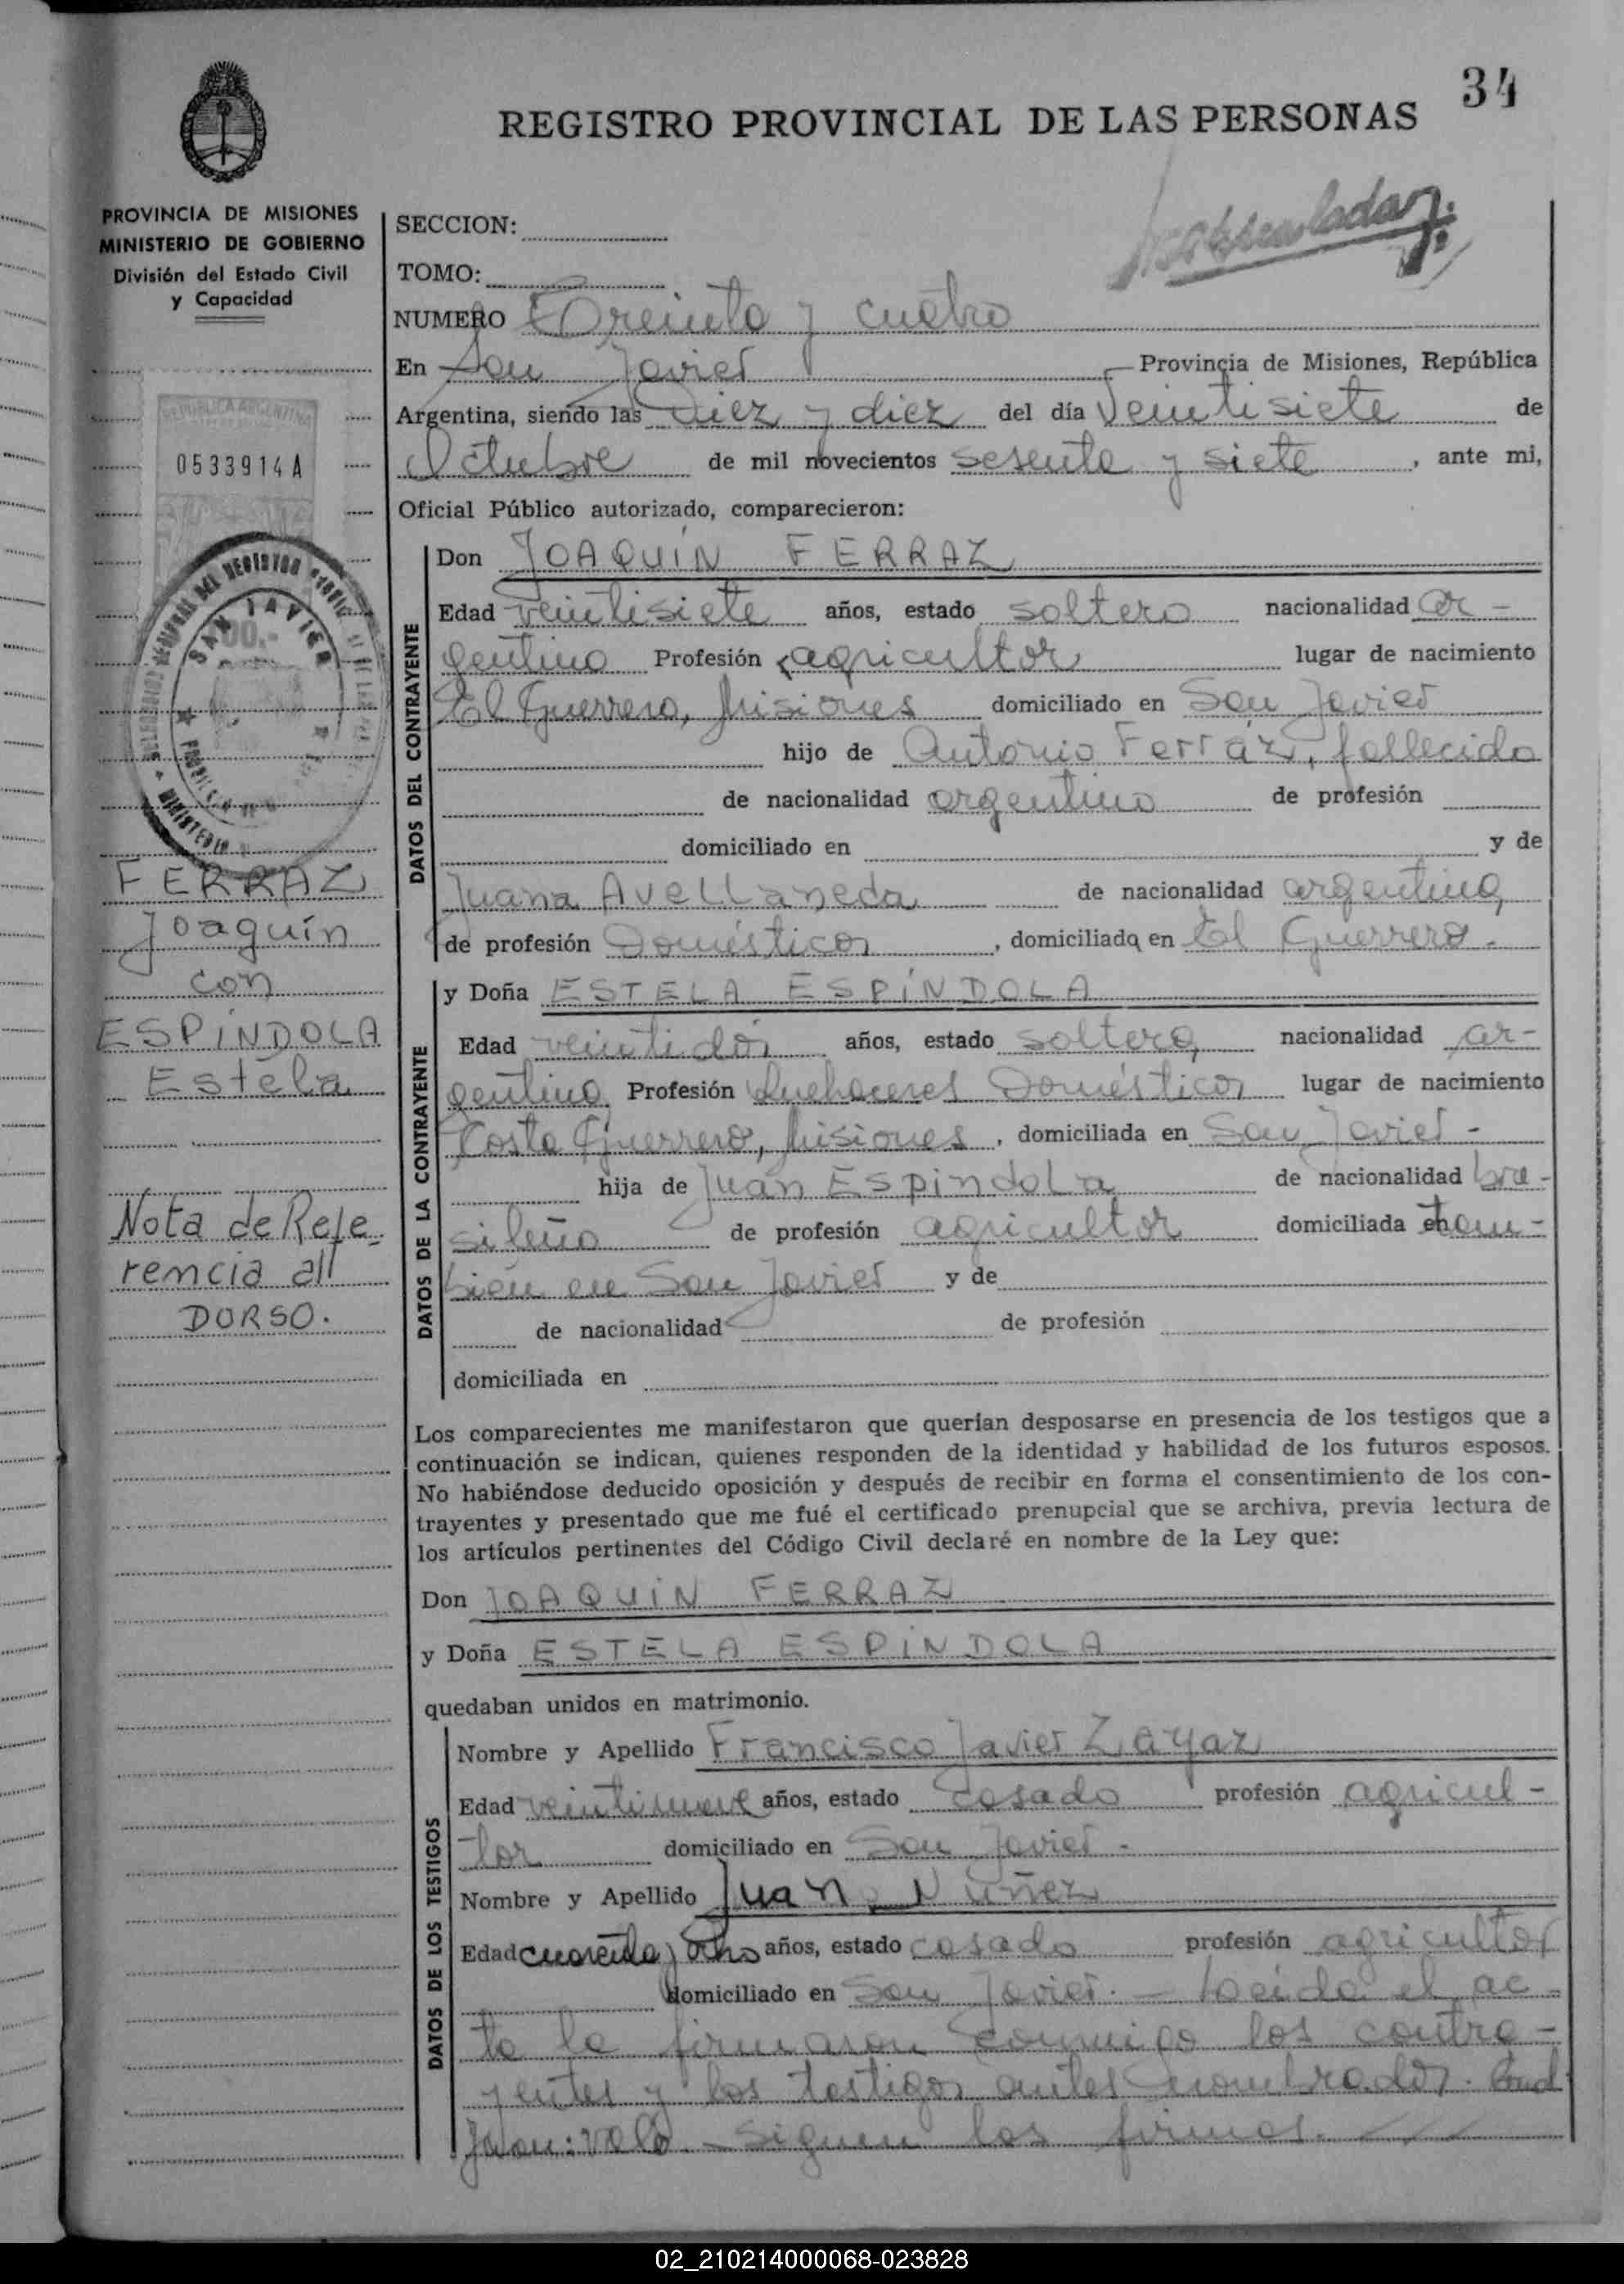 34
REGISTRO PROVINCIAL DE LAS PERSONAS
PROVINCIA DE MISIONES
MINISTERIO DE GOBIERNO
División del Estado Civil
y Capacidad
REPUBLICA ARGENTINA
0533914A
SAN JAVIER
FERRAZ
Joaquín
con
ESPÍNDOLA
Estela
Nota de Refe-
rencia al
DORSO.
SECCION:
TOMO:
NUMERO Treinta y cuatro
En San Javier Provincia de Misiones, República
Argentina, siendo las diez y diez del día Veintisiete de
Octubre de mil novecientos sesenta y siete, ante mi,
Oficial Público autorizado, comparecieron:
DATOS DEL CONTRAYENTE
Don JOAQUÍN FERRAZ
Edad veintisiete años, estado soltero nacionalidad ar-
gentino Profesión agricultor lugar de nacimiento
El Guerrero, Misiones domiciliado en San Javier
hijo de Antonio Ferraz, fallecido
de nacionalidad argentino de profesión
domiciliado en y de
Juana Avellaneda de nacionalidad argentina,
de profesión Domésticos, domiciliada en El Guerrero.
DATOS DE LA CONTRAYENTE
y Doña ESTELA ESPÍNDOLA
Edad veintidós años, estado soltera, nacionalidad ar-
gentina Profesión Quehaceres Domésticos lugar de nacimiento
Costa Guerrero, Misiones, domiciliada en San Javier -
hija de Juan Espíndola de nacionalidad bra-
sileño de profesión agricultor domiciliada en tam-
bién en San Javier y de
de nacionalidad de profesión
domiciliada en
Los comparecientes me manifestaron que querían desposarse en presencia de los testigos que a
continuación se indican, quienes responden de la identidad y habilidad de los futuros esposos.
No habiéndose deducido oposición y después de recibir en forma el consentimiento de los con-
trayentes y presentado que me fué el certificado prenupcial que se archiva, previa lectura de
los artículos pertinentes del Código Civil declaré en nombre de la Ley que:
Don JOAQUÍN FERRAZ
y Doña ESTELA ESPÍNDOLA
quedaban unidos en matrimonio.
DATOS DE LOS TESTIGOS
Nombre y Apellido Francisco Javier Zayaz
Edad veintinueve años, estado casado profesión agricul-
tor domiciliado en San Javier -
Nombre y Apellido Juan Núñez
Edad cuarenta y ocho años, estado casado profesión agricultor
domiciliado en San Javier. - Leída el ac-
ta la firmaron conmigo los contra-
yentes y los testigos antes nombrados.
vale. - Siguen las firmas.
02_210214000068-023828